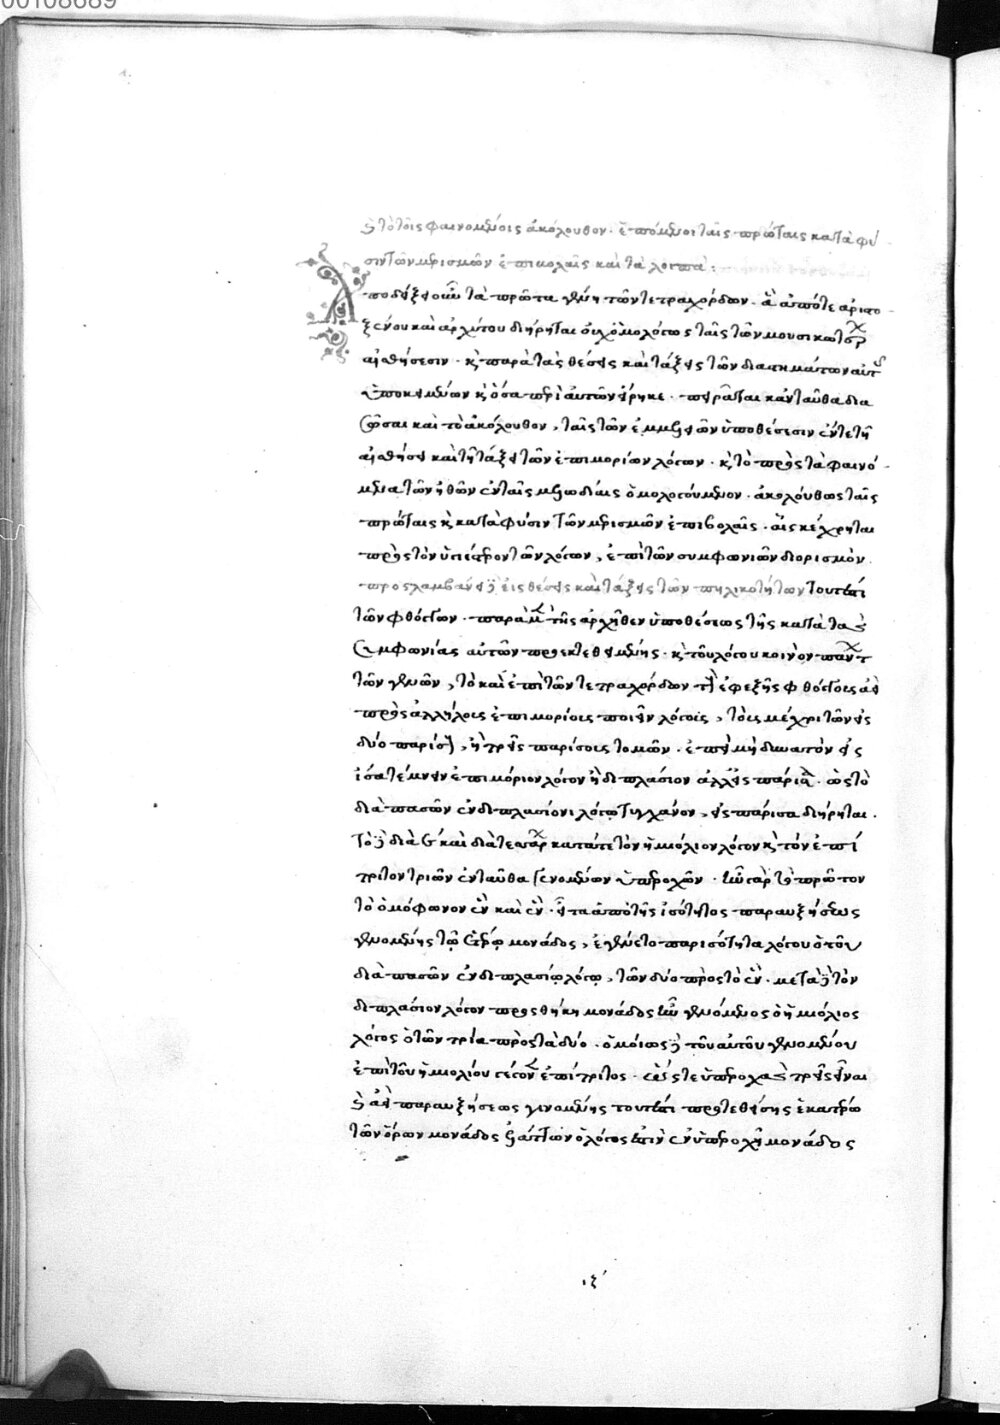 00108689
καὶ τὸ τοῖς φαινομένοις ἀκόλουθον. ἑπόμενοι ταῖς πρώταις κατὰ φύ
σιν τῶν μερισμῶν ἐπιβολαῖς καὶ τὰ λοιπά:
Αποδείξας οὖν τὰ πρῶτα γένη τῶν τετραχόρδων. ἃ ἀπό τε ἀριστο
ξένου καὶ ἀρχύτου διῄρηται οὐχ ὁμολόγως ταῖς τῶν μουσικωτάτων
αἰσθήσεσιν. καὶ παρὰ τὰς θέσεις καὶ τάξεις τῶν διαστημάτων αὐτοῖς
ὑποκειμένων καὶ ὅσα περὶ αὐτῶν εἴρηκε. πειρᾶται κἀνταῦθα δια
σῶσαι καὶ τὸ ἀκόλουθον, ταῖς τῶν ἐμμελειῶν ὑποθέσεσιν ἐν τε τῇ
αἰσθήσει καὶ τῇ τάξει τῶν ἐπιμορίων λόγων. καὶ τὸ πρὸς τὰ φαινό
μενα τῶν ἠθῶν ἐν ταῖς μελωδίαις ὁμολογούμενον. ἀκολούθως ταῖς
πρώταις καὶ κατὰ φύσιν τῶν μερισμῶν ἐπιβολαῖς. αἷς κέχρηται
πρὸς τὸν ὑπέρτερον τῶν λόγων, ἐπὶ τῶν συμφωνιῶν διορισμόν.
προσλαμβάνει δὲ εἰς θέσεις καὶ τάξεις τῶν πηλικοτήτων τουτέστι
τῶν φθόγγων. παρὰ μὲν τῆς ἀρχῆθεν ὑποθέσεως τῆς κατὰ τὰς
συμφωνίας αὐτῶν προεκτεθειμένης. καὶ τοῦ λόγου κοινὸν πάντων
τῶν γενῶν, τὸ καὶ ἐπὶ τῶν τετραχόρδων τοὺς ἐφεξῆς φθόγγους ἀεὶ
πρὸς ἀλλήλους ἐπιμορίους ποιεῖν λόγους, τοὺς μέχρι τῶν εἰς
δύο παρίσους, ἢ τρεῖς παρίσους τομῶν. ἐπεὶ μὴ δυνατὸν εἰς
ἴσα τέμνειν ἐπιμόριον λόγον ἢ διπλάσιον ἀλλ' εἰς πάρισα. ὡς τὸ
διὰ πασῶν ἐν διπλασίονι λόγῳ τυγχάνον, εἰς πάρισα διῄρηται.
τὸ δὲ διὰ ε καὶ διὰ τεσσάρων κατά τε τὸν ἡμιόλιον λόγον καὶ τὸν ἐπί
τριτον τριῶν ἐνταῦθα γενομένων ὑπεροχῶν. ἦν γὰρ τὸ πρῶτον
τὸ ὁμόφωνον ἓν καὶ ἕν. εἶτα ἀπὸ τῆς ἰσότητος παραυξήσεως
γενομένης τῷ ἑτέρῳ μονάδος, ἐγένετο παρισότητα λόγου ὁ τοῦ
διὰ πασῶν ἐν διπλασίῳ λόγῳ, τῶν δύο πρὸς τὸ ἕν. μετὰ δὲ τὸν
διπλάσιον λόγον προσθήκῃ μονάδος ἦν γενόμενος ὁ ἡμιόλιος
λόγος ὁ τῶν τρία πρὸς τὰ δύο. ὁμοίως δὲ τοῦ αὐτοῦ γενομένου
ἐπὶ τοῦ ἡμιολίου γέγονεν ἐπίτριτος. ὥστε ὑπεροχὰς τρεῖς εἶναι
καὶ ἀεὶ παραυξήσεως γινομένης τουτέστι προστεθείσης ἑκατέρῳ
τῶν ὅρων μονάδος ὁ λόγος ἐστὶν ἐν ὑπεροχῇ μονάδος
ιζ´